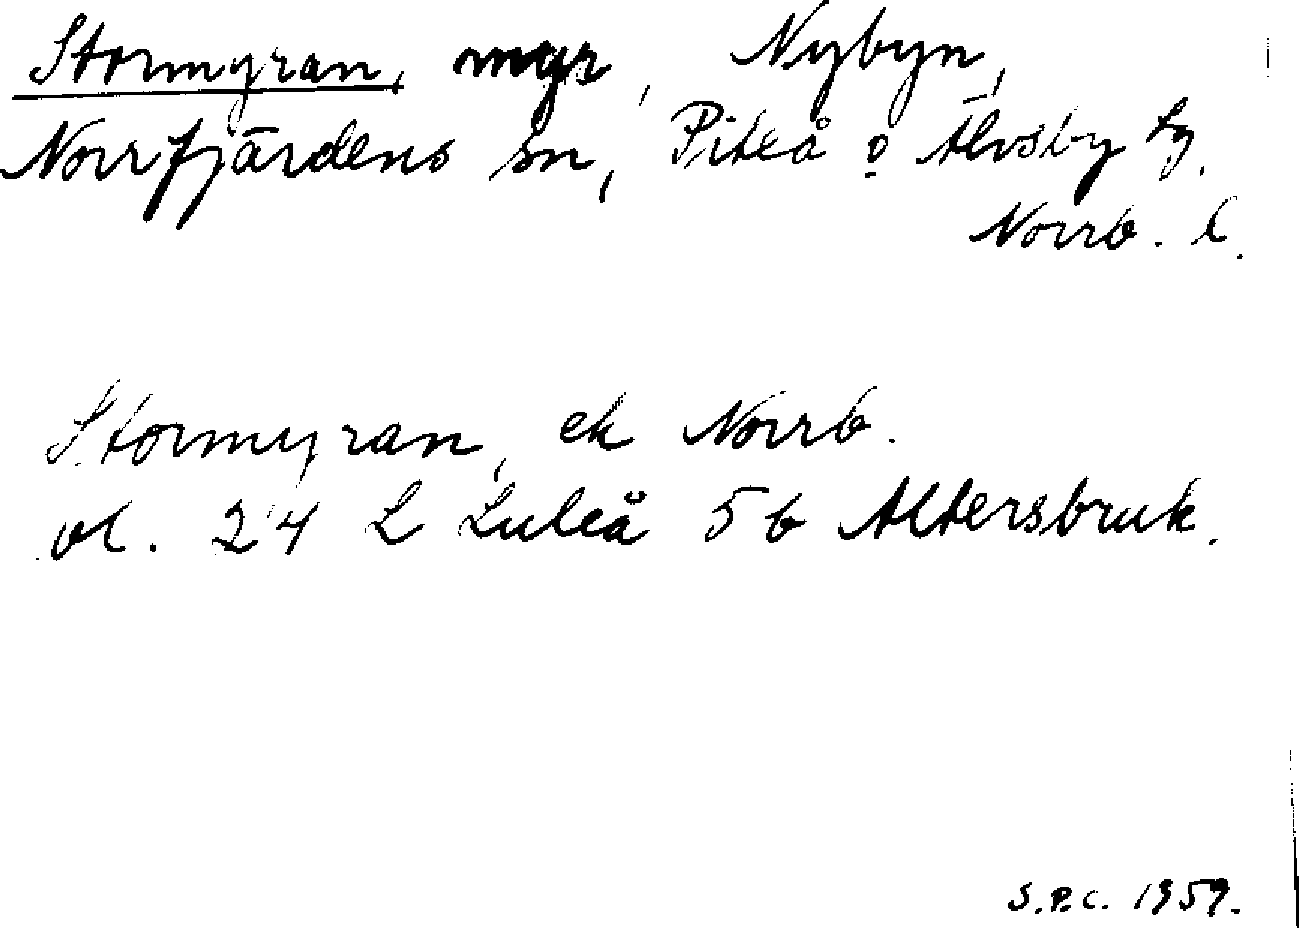 Stormyran, myr, Nybyn,
Norrfjärdens sn, Piteå o Älvsby tg.
Norrb. l.
Stormyran, ek Norrb.
bl. 24 L Luleå 5b Altersbruk.
S.P.C. 1959.